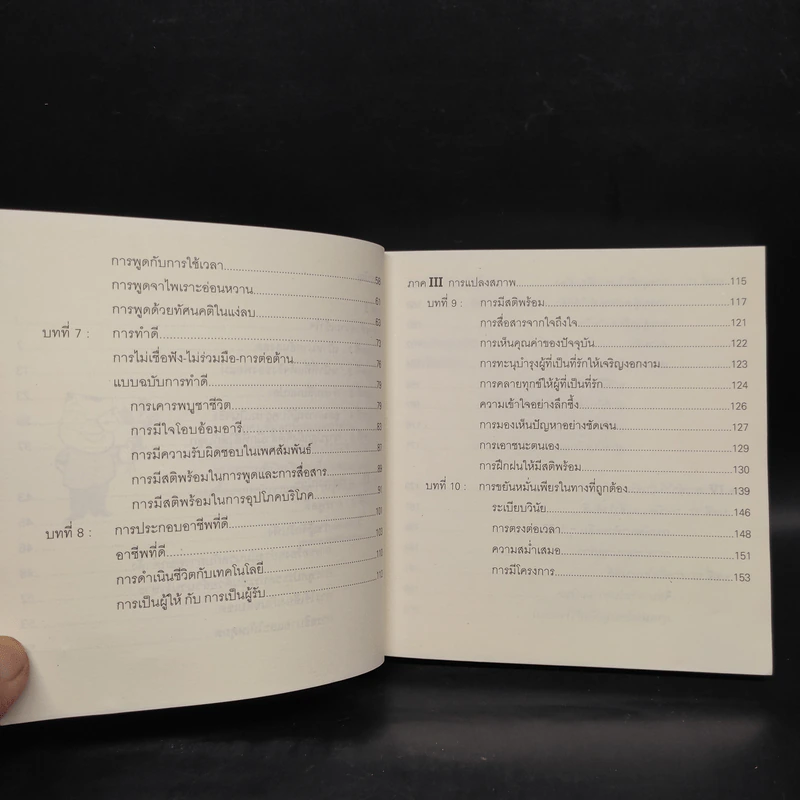 การพูดกับการใช้เวลา........58
การพูดจาไพเราะอ่อนหวาน........61
การพูดด้วยทัศนคติในแง่ลบ........63
บทที่ 7 : การทำดี........73
การไม่เชื่อฟัง-ไม่ร่วมมือ-การต่อต้าน........76
แบบฉบับการทำดี........79
การเคารพบูชาชีวิต........79
การมีใจโอบอ้อมอารี........83
การมีความรับผิดชอบในเพศสัมพันธ์........87
การมีสติพร้อมในการพูดและการสื่อสาร........89
การมีสติพร้อมในการอุปโภคบริโภค........91
บทที่ 8 : การประกอบอาชีพที่ดี........101
อาชีพที่ดี........103
การดำเนินชีวิตกับเทคโนโลยี........110
การเป็นผู้ให้ กับ การเป็นผู้รับ........112
ภาค III การแปลงสภาพ........115
บทที่ 9 : การมีสติพร้อม........117
การสื่อสารจากใจถึงใจ........121
การเห็นคุณค่าของปัจจุบัน........122
การทะนุบำรุงผู้ที่เป็นที่รักให้เจริญงอกงาม........123
การคลายทุกข์ให้ผู้ที่เป็นที่รัก........124
ความเข้าใจอย่างลึกซึ้ง........126
การมองเห็นปัญหาอย่างชัดเจน........127
การเอาชนะตนเอง........129
การฝึกฝนให้มีสติพร้อม........130
บทที่ 10 : การขยันหมั่นเพียรในทางที่ถูกต้อง........139
ระเบียบวินัย........146
การตรงต่อเวลา........148
ความสม่ำเสมอ........151
การมีโครงการ........153